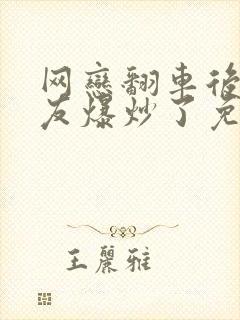 网戀翻車後
友爆炒了免
王麗雅